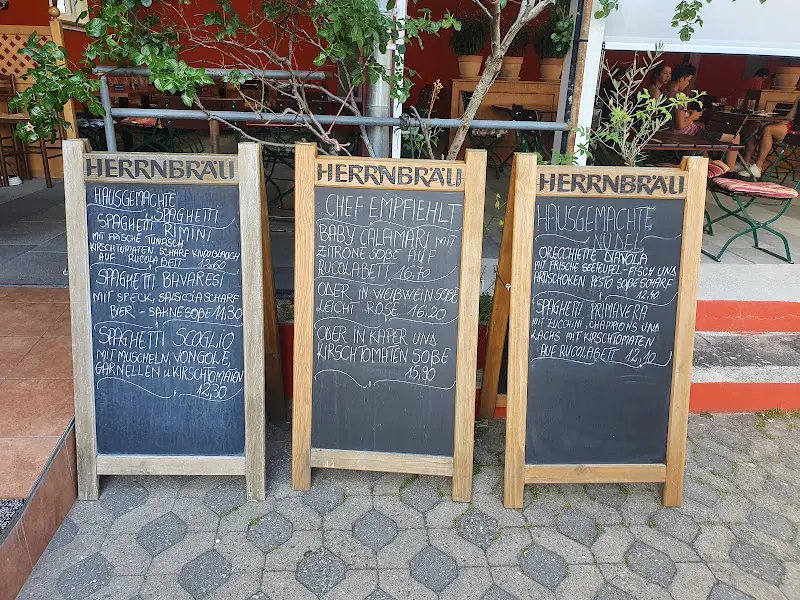 HERRNBRÄU
HAUSGEMACHTE
SPAGHETTI
SPAGHETTI RIMINI
MIT FRISCHE TUNFISCH
KIRSCHTOMATEN SCHARF KNOBLAUCH
AUF RUCOLABETT 12,60
SPAGHETTI BAVARESI
MIT SPECK, SALSICCIA SCHARF
BIER-SAHNESOßE 11,30
SPAGHETTI SCOGLIO
MIT MUSCHELN, VONGOLE
GARNELLEN U KIRSCHTOMATEN
12,30
HERRNBRÄU
CHEF EMPFIEHLT
BABY CALAMARI MIT
ZITRONE SOßE AUF
RUCOLABETT 16,70
ODER IN WEIßWEIN SOßE
LEICHT ROSE 16,20
ODER IN KAPER UND
KIRSCHTOMATEN SOßE
15,90
HERRNBRÄU
HAUSGEMACHTE
NUDEL
ORECCHIETTE DIAVOLA
MIT FRISCHE SEETEUFEL-FISCH UND
ARTISCHOKEN PESTO SOßE SCHARF
12,40
SPAGHETTI PRIMAVERA
MIT ZUCCHINI, CHAMPIONS UND
LACHS MIT KIRSCHTOMATEN
AUF RUCOLABETT 12,10